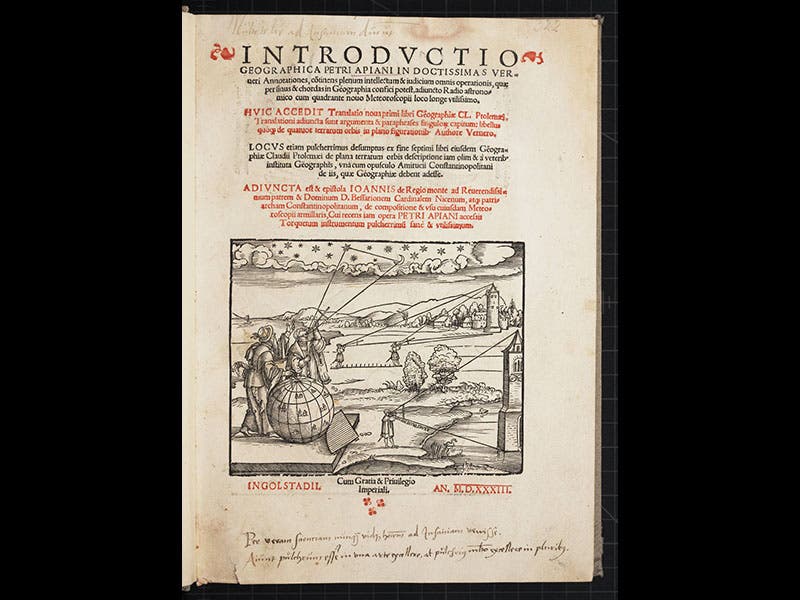 ad Insaniam
INTRODVCTIO
GEOGRAPHICA PETRI APIANI IN DOCTISSIMAS VER-
neri Annotationes, cōtinens plenum intellectum & iudicium omnis operationis, quæ
per sinus & chordas in Geographia confici potest, adiuncto Radio astrono-
mico cum quadrante nouo Meteoroscopii loco longe vtilissimo.
HVIC ACCEDIT Translatio noua primi libri Geographiæ CL. Ptolemæi,
Translationi adiuncta sunt argumenta & paraphrases singulorū capitum: libellus
quoq; de quatuor terrarum orbis in plano figurationib⁹ Authore Vernero.
LOCVS etiam pulcherrimus desumptus ex fine septimi libri eiusdem Geogra-
phiæ Claudii Ptolemæi de plana terrarum orbis descriptione iam olim & a veterib⁹
instituta Geographis, vnà cum opusculo Amirucii Constantinopolitani
de iis, quæ Geographiæ debent adesse.
ADIVNCTA est & epistola IOANNIS de Regio monte ad Reuerendissi-
mum patrem & Dominum D. Bessarionem Cardinalem Nicenum, atq; patri-
archam Constantinopolitanum, de compositione & vsu cuiusdam Meteo-
roscopii armillaris, Cui recens iam opera PETRI APIANI accessit
Torquetum instrumentum pulcherrimū sanè & vtilissimum.
INGOLSTADII.
Cum Gratia & Priuilegio
Imperiali.
AN. M.D.XXXIII.
Per veram scientiam ad Insaniam venisse.
esse in vna arte excellere, at excellere in pluribus.